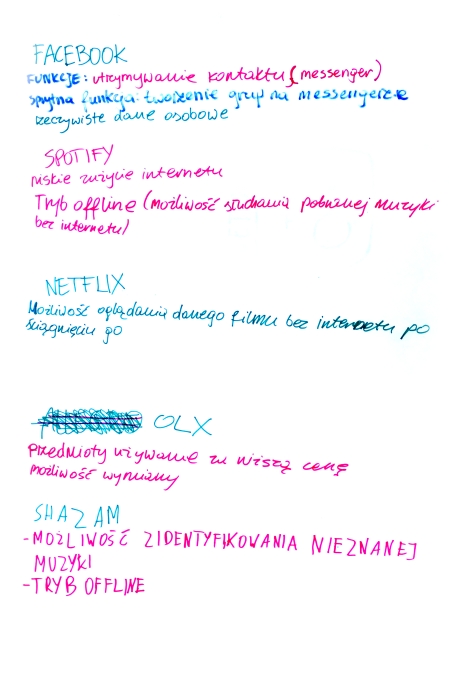 FACEBOOK
FUNKCJE: utrzymywanie kontaktu (messenger)
sprytna funkcja: tworzenie grup na messengerze
rzeczywiste dane osobowe
SPOTIFY
niskie zużycie internetu
Tryb offline (możliwość słuchania pobranej muzyki
bez internetu)
NETFLIX
Możliwość oglądania danego filmu bez internetu po
ściągnięciu go
OLX
przedmioty używane za niższą cenę
możliwość wymiany
SHAZAM
-MOŻLIWOŚĆ ZIDENTYFIKOWANIA NIEZNANEJ
MUZYKI
-TRYB OFFLINE